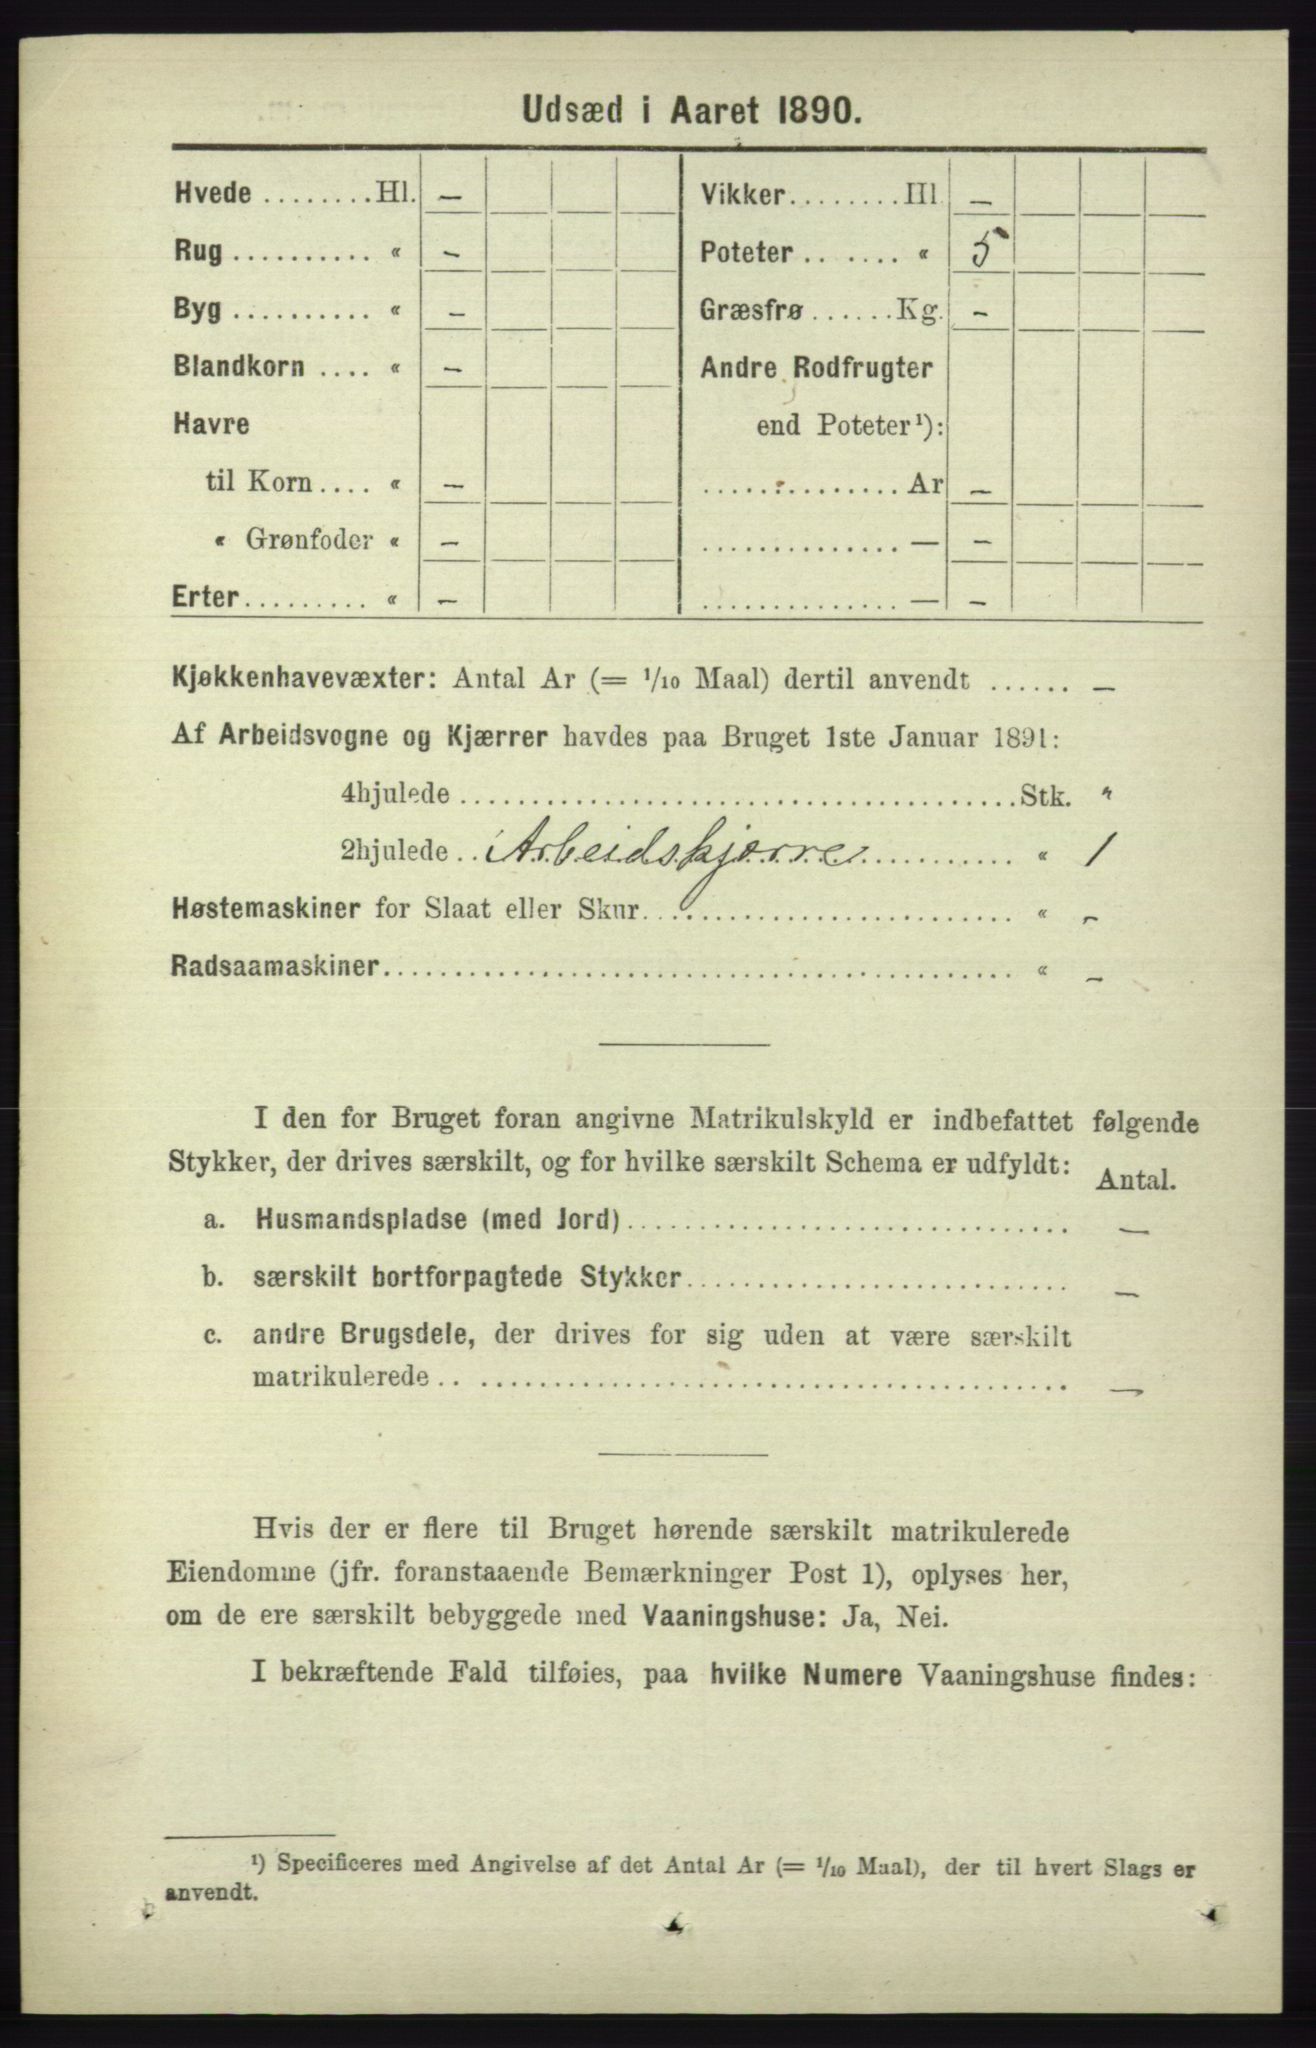 Udsæd i Aaret 1890.
Hvede ........Hl. –
Rug .......... “ –
Byg .......... “ –
Blandkorn .... “ –
Havre
til Korn.... “ –
“ Grønfoder “ –
Erter......... “ –
Vikker........Hl –
Poteter .. ...... “ 5
Græsfrø ......Kg. –
Andre Rodfrugter
end Poteter¹):
............... Ar –
............... — –
............... — –
Kjøkkenhavevæxter: Antal Ar (= 1/10 Maal) dertil anvendt ...... –
Af Arbeidsvogne og Kjærrer havdes paa Bruget 1ste Januar 1891:
4hjulede ........................................Stk. "
2hjulede .. Arbeidskjærre ........... “ 1
Høstemaskiner for Slaat eller Skur.......................... “ –
Radsaamaskiner............................................. “ –
I den for Bruget foran angivne Matrikulskyld er indbefattet følgende
Stykker, der drives særskilt, og for hvilke særskilt Schema er udfyldt: Antal.
a. Husmandspladse (med Jord)............................... –
b. særskilt bortforpagtede Stykker........................... –
c. andre Brugsdele, der drives for sig uden at være særskilt
matrikulerede .. ......................................... –
Hvis der er flere til Bruget hørende særskilt matrikulerede
Eiendomme (jfr. foranstaaende Bemærkninger Post 1), oplyses her,
om de ere særskilt bebyggede med Vaaningshuse: Ja, Nei.
I bekræftende Fald tilføies, paa hvilke Numere Vaaningshuse findes:
¹) Specificeres med Angivelse af det Antal Ar (= 1/10 Maal), der til hvert Slags er
anvendt.